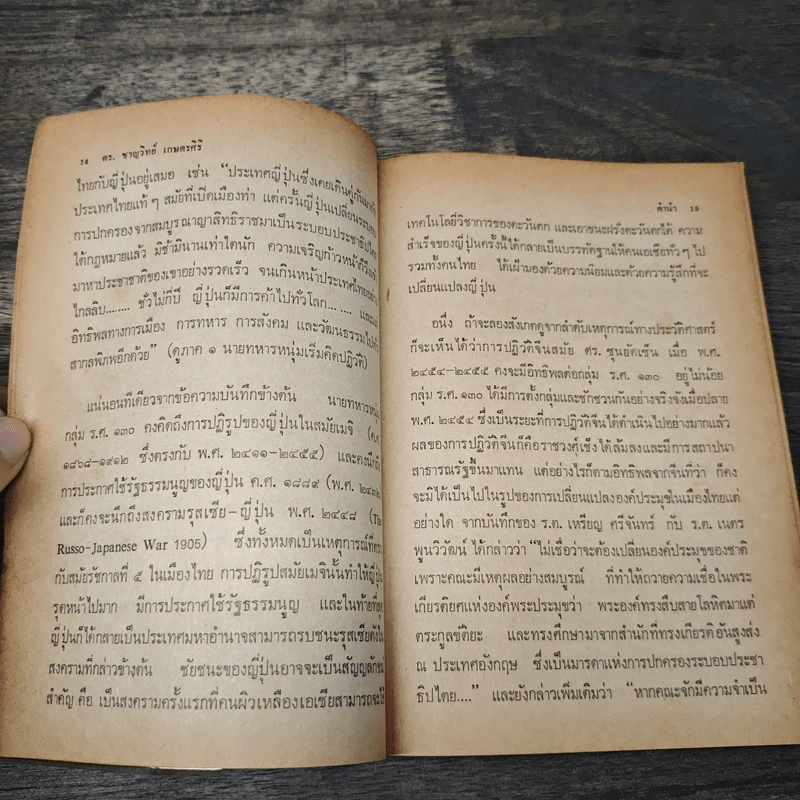 14 ดร. ชาญวิทย์ เกษตรศิริ
ไทยกับญี่ปุ่นอยู่เสมอ เช่น “ประเทศญี่ปุ่นซึ่งเคยเดินคู่กันมากับ
ประเทศไทยแท้ ๆ สมัยที่เปิดเมืองท่า แต่ครั้นญี่ปุ่นเปลี่ยนระบอบ
การปกครองจากสมบูรณาญาสิทธิราชมาเป็นระบอบประชาธิปไตย
ใต้กฎหมายแล้ว มิช้ามินานเท่าใดนัก ความเจริญก้าวหน้าก็วิ่งเข้า
มาหาประชาชาติของเขาอย่างรวดเร็ว จนเกินหน้าประเทศไทยอย่าง
ไกลลิบ........ ชั่วไม่กี่ปี ญี่ปุ่นก็มีการค้าไปทั่วโลก... .....
อิทธิพลทางการเมือง การทหาร การสังคม และวัฒนธรรมไปทั่ว
สากลพิภพอีกด้วย” (ดูภาค ๑ นายทหารหนุ่มเริ่มคิดปฏิวัติ)
แน่นอนทีเดียวจากข้อความบันทึกข้างต้น นายทหารหนุ่ม
กลุ่ม ร.ศ. ๑๓๐ คงคิดถึงการปฏิรูปของญี่ปุ่นในสมัยเมจิ (ค.ศ.
๑๘๖๘–๑๙๑๒ ซึ่งตรงกับ พ.ศ. ๒๔๑๑–๒๔๕๕) และคงนึกถึง
การประกาศใช้รัฐธรรมนูญของญี่ปุ่น ค.ศ. ๑๘๘๙ (พ.ศ. ๒๔๓๒
และก็คงจะนึกถึงสงครามรุสเซีย–ญี่ปุ่น พ.ศ. ๒๔๔๘ (The
Russo-Japanese War 1905) ซึ่งทั้งหมดเป็นเหตุการณ์ที่ตรง
กับสมัยรัชกาลที่ ๕ ในเมืองไทย การปฏิรูปสมัยเมจินั้นทำให้ญี่ปุ่น
รุดหน้าไปมาก มีการประกาศใช้รัฐธรรมนูญ และในท้ายที่สุด
ญี่ปุ่นก็ได้กลายเป็นประเทศมหาอำนาจสามารถรบชนะรุสเซียดังใน
สงครามที่กล่าวข้างต้น ชัยชนะของญี่ปุ่นอาจจะเป็นสัญญลักษณ์
สำคัญ คือ เป็นสงครามครั้งแรกที่คนผิวเหลืองเอเซียสามารถจะใช้
คำนำ 15
เทคโนโลยีวิชาการของตะวันตก และเอาชนะฝรั่งตะวันตกได้ ความ
สำเร็จของญี่ปุ่นครั้งนี้ได้กลายเป็นบรรทัดฐานให้คนเอเซียทั่วๆ ไป
รวมทั้งคนไทย ได้เฝ้ามองด้วยความนิยมและด้วยความรู้สึกที่จะ
เปลี่ยนแปลงญี่ปุ่น
อนึ่ง ถ้าจะลองสังเกตดูจากลำดับเหตุการณ์ทางประวัติศาสตร์
ก็จะเห็นได้ว่าการปฏิวัติจีนสมัย ดร. ซุนยัดเซ็น เมื่อ พ.ศ.
๒๔๕๔–๒๔๕๕ คงจะมีอิทธิพลต่อกลุ่ม ร.ศ. ๑๓๐ อยู่ไม่น้อย
กลุ่ม ร.ศ. ๑๓๐ ได้มีการตั้งกลุ่มและชักชวนกันอย่างจริงจังเมื่อปลาย
พ.ศ. ๒๔๕๔ ซึ่งเป็นระยะที่การปฏิวัติจีนได้ดำเนินไปอย่างมากแล้ว
ผลของการปฏิวัติจีนก็คือราชวงศ์เช็งได้ล้มลงและมีการสถาปนา
สาธารณรัฐขึ้นมาแทน แต่อย่างไรก็ตามอิทธิพลจากจีนที่ว่า ก็คง
จะมิได้เป็นไปในรูปของการเปลี่ยนแปลงองค์ประมุขในเมืองไทยแต่
อย่างใด จากบันทึกของ ร.ต. เหรียญ ศรีจันทร์ กับ ร.ต. เนตร
พูนวิวัฒน์ ได้กล่าวว่า “ไม่เชื่อว่าจะต้องเปลี่ยนองค์ประมุขของชาติ
เพราะคณะมีเหตุผลอย่างสมบูรณ์ ที่ทำให้ถวายความเชื่อในพระ
เกียรติยศแห่งองค์พระประมุขว่า พระองค์ทรงสืบสายโลหิตมาแต่
ตระกูลขัติยะ และทรงศึกษามาจากสำนักที่ทรงเกียรติอันสูงส่ง
ณ ประเทศอังกฤษ ซึ่งเป็นมารดาแห่งการปกครองระบอบประชา
ธิปไตย....” และยังกล่าวเพิ่มเติมว่า “หากคณะจักมีความจำเป็น